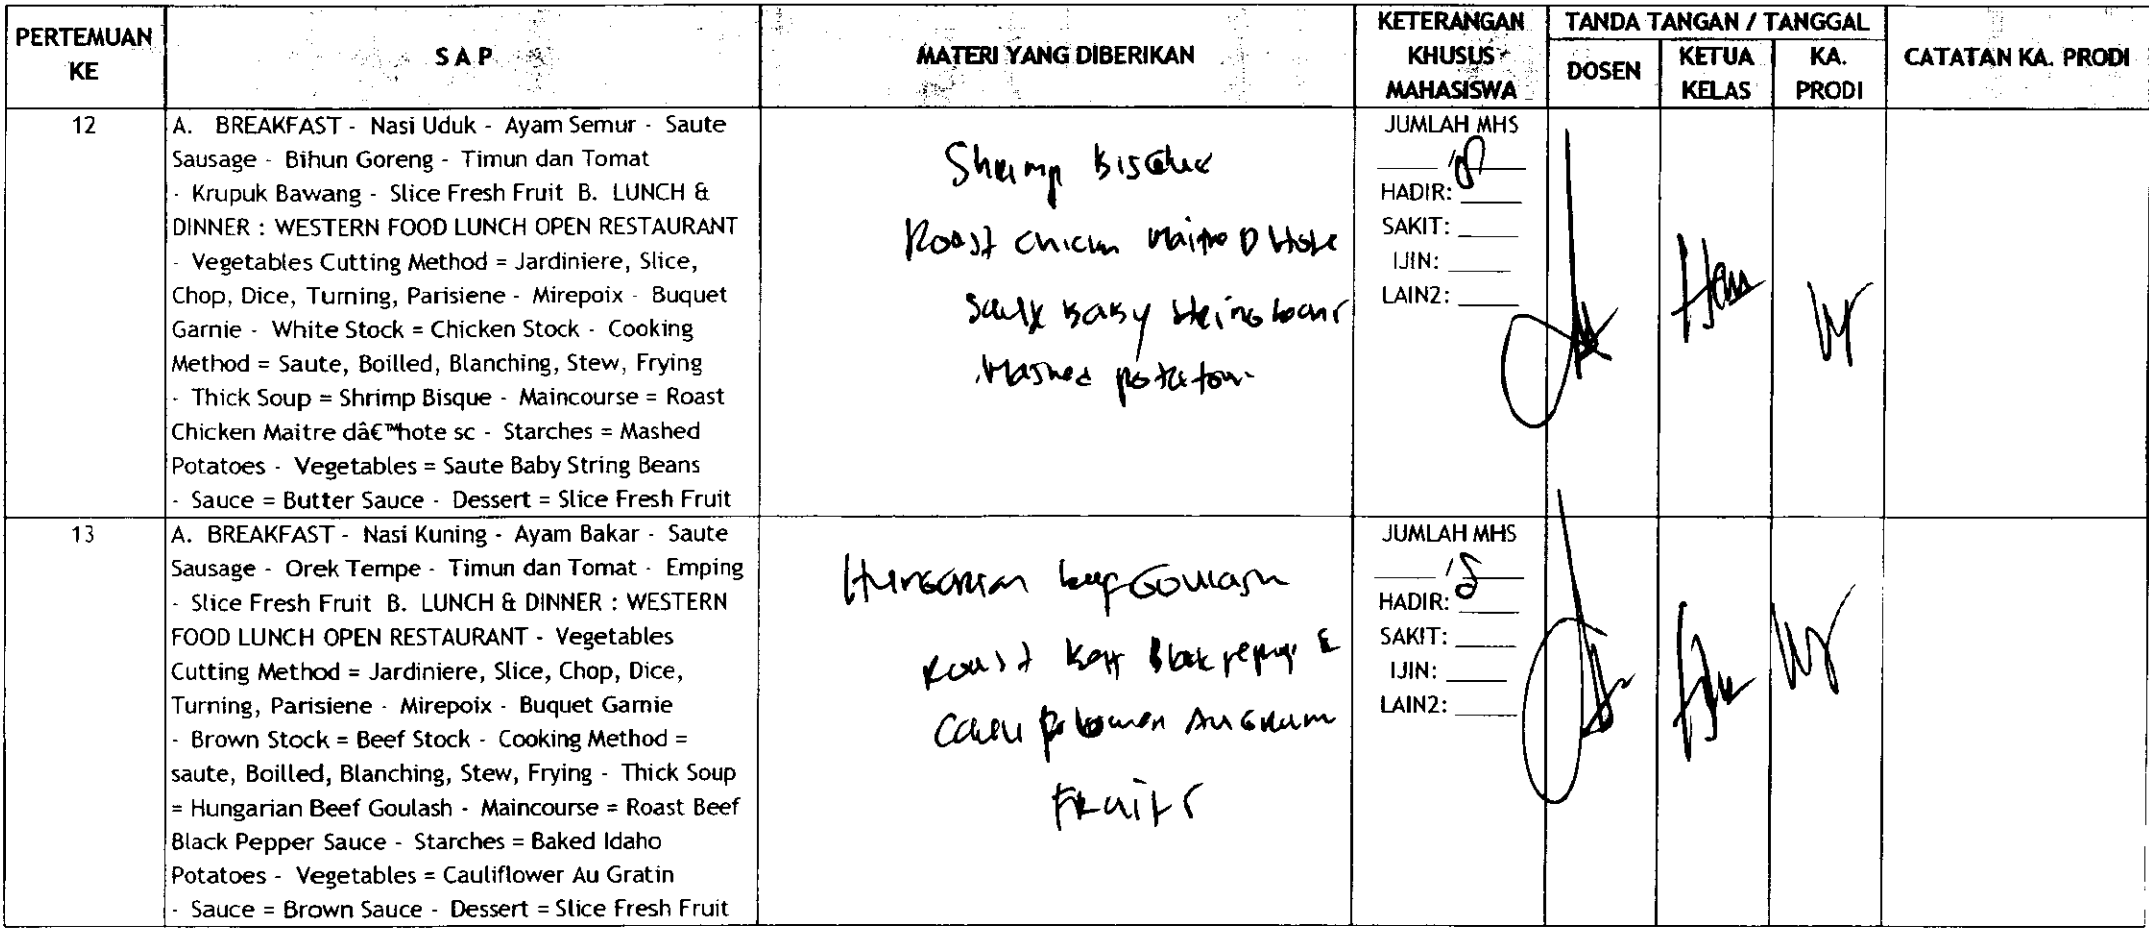 PERTEMUAN KE
SAP
MATERI YANG DIBERIKAN
KETERANGAN KHUSUS MAHASISWA
TANDA TANGAN / TANGGAL
DOSEN
KETUA KELAS
KA. PRODI
CATATAN KA. PRODI
12
A. BREAKFAST - Nasi Uduk - Ayam Semur - Saute
Sausage - Bihun Goreng - Timun dan Tomat
- Krupuk Bawang - Slice Fresh Fruit B. LUNCH &
DINNER : WESTERN FOOD LUNCH OPEN RESTAURANT
- Vegetables Cutting Method = Jardiniere, Slice,
Chop, Dice, Turning, Parisiene - Mirepoix - Buquet
Garnie - White Stock = Chicken Stock - Cooking
Method = Saute, Boilled, Blanching, Stew, Frying
- Thick Soup = Shrimp Bisque - Maincourse = Roast
Chicken Maitre dâ€™hote sc - Starches = Mashed
Potatoes - Vegetables = Saute Baby String Beans
- Sauce = Butter Sauce - Dessert = Slice Fresh Fruit
Shrimp Bisque
Roast Chicken Maitre D Hote
Baby
Mashed potatoes
JUMLAH MHS
HADIR:
SAKIT:
IJIN:
LAIN2:
13
A. BREAKFAST - Nasi Kuning - Ayam Bakar - Saute
Sausage - Orek Tempe - Timun dan Tomat - Emping
- Slice Fresh Fruit B. LUNCH & DINNER : WESTERN
FOOD LUNCH OPEN RESTAURANT - Vegetables
Cutting Method = Jardiniere, Slice, Chop, Dice,
Turning, Parisiene - Mirepoix - Buquet Garnie
- Brown Stock = Beef Stock - Cooking Method =
saute, Boilled, Blanching, Stew, Frying - Thick Soup
= Hungarian Beef Goulash - Maincourse = Roast Beef
Black Pepper Sauce - Starches = Baked Idaho
Potatoes - Vegetables = Cauliflower Au Gratin
- Sauce = Brown Sauce - Dessert = Slice Fresh Fruit
Hungarian beef Goulash
Roast Beef Black pepper
Au Gratin
Fruits
JUMLAH MHS
HADIR:
SAKIT:
IJIN:
LAIN2: